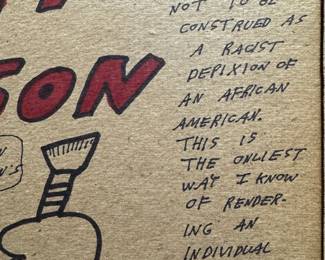 SON
NOT TO BE
CONSTRUED AS
A RACIST
DEPIXION OF
AN AFRICAN
AMERICAN.
THIS IS
THE ONLIEST
WAY I KNOW
OF RENDER-
ING AN
INDIVIDUAL
N'S